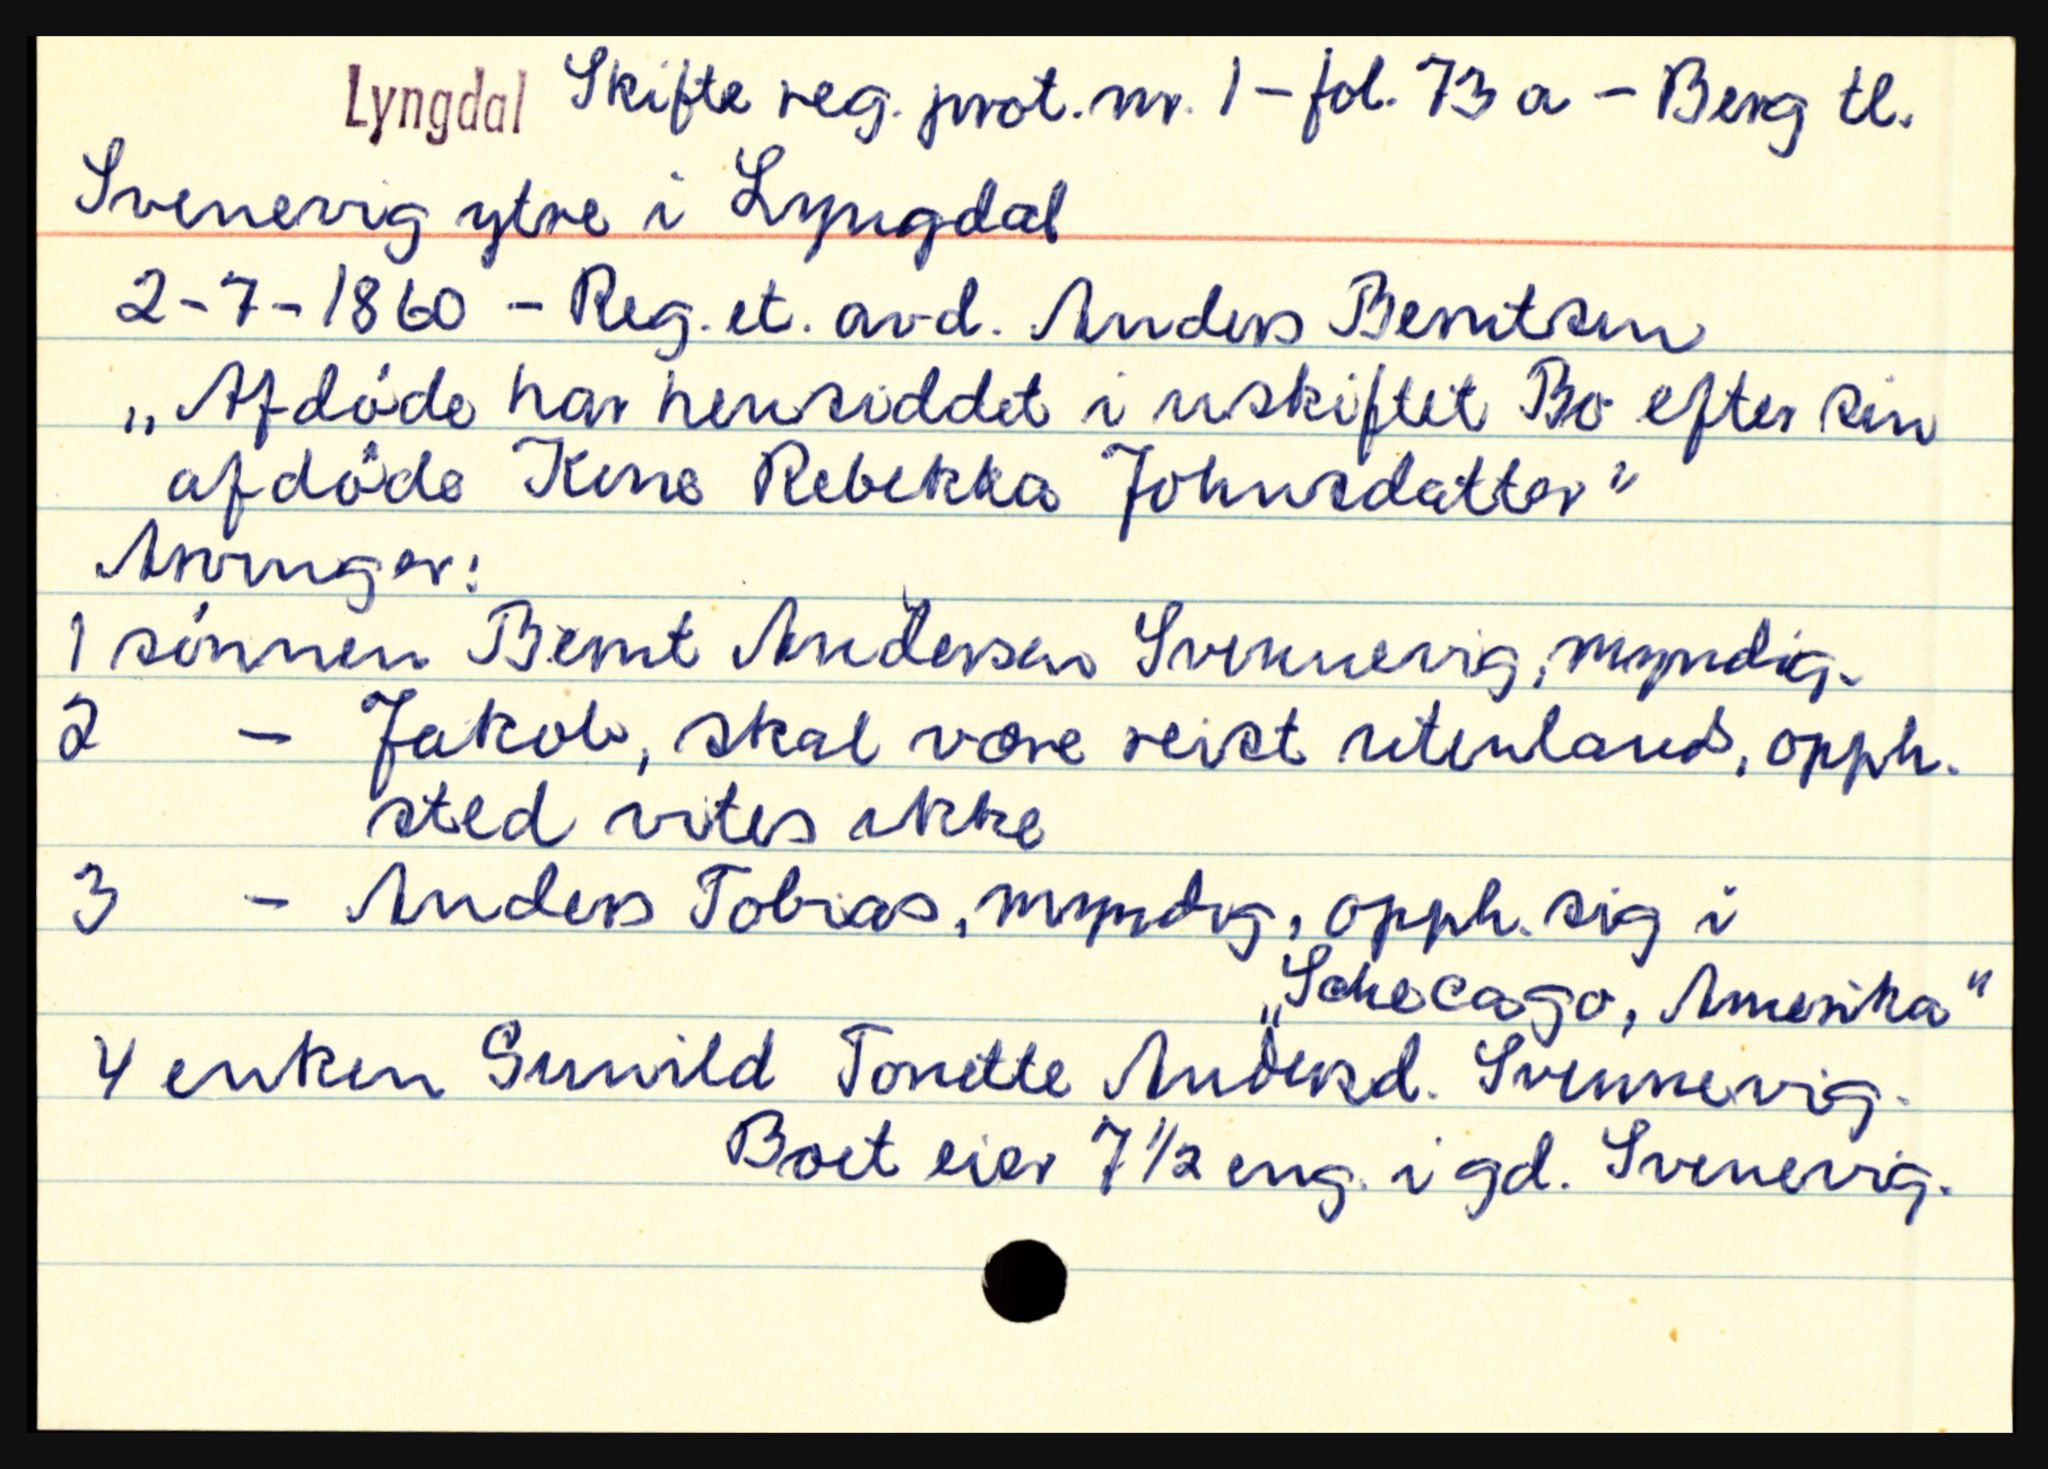 Lyngdal Skifte reg. prot. nr. 1 - fol. 73 a - Berg tl.
Svenevig ytre i Lyngdal
2-7-1860 - Reg. et. avd. Anders Berntsen
„Afdøde har hensiddet i uskiftet Bo efter sin
afdøde Kone Rebekka Johnsdatter"
Arvinger:
1 sønnen Bernt Andersen Svennevig, myndig.
2 - Jakob, skal være reist utenlands, opph.
sted vites ikke
3 - Anders Tobias, myndig, opph. sig i
„Schecago, Amerika"
4 enken Gunvild Tonette Andersd. Svennevig.
Boet eier 7 1/2 eng. i gd. Svenevig.